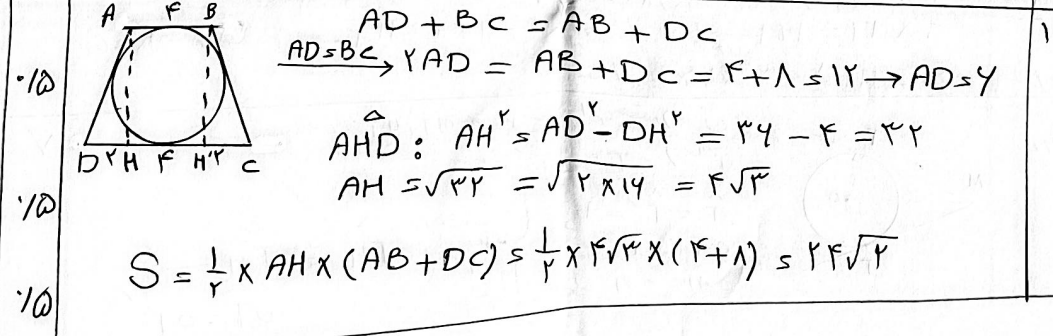 ۱
A ۴ B
D ۲ H ۴ H' ۲ C
AD + BC = AB + DC
۰/۵
AD=BC → ۲AD = AB + DC = ۴+۸ = ۱۲ → AD=۶
AHD: AH^۲ = AD^۲ - DH^۲ = ۳۶ - ۴ = ۳۲
۰/۵
AH = √۳۲ = √۲×۱۶ = ۴√۳
۰/۵
S = ۱/۲ × AH × (AB+DC) = ۱/۲ × ۴√۳ × (۴+۸) = ۲۴√۲